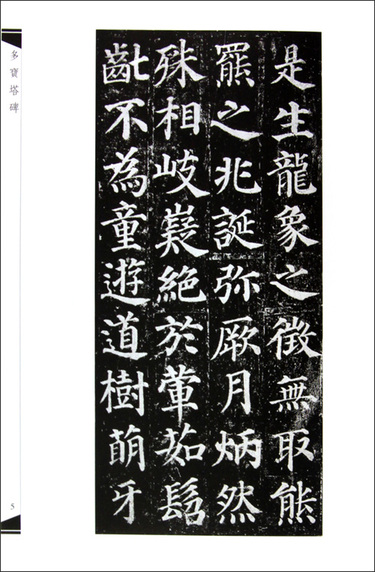 是生龍象之徵無取熊
羆之兆誕弥厥月炳然
殊相岐嶷絕於葷茹髫
齔不為童遊道樹萌牙
多寶塔碑
5